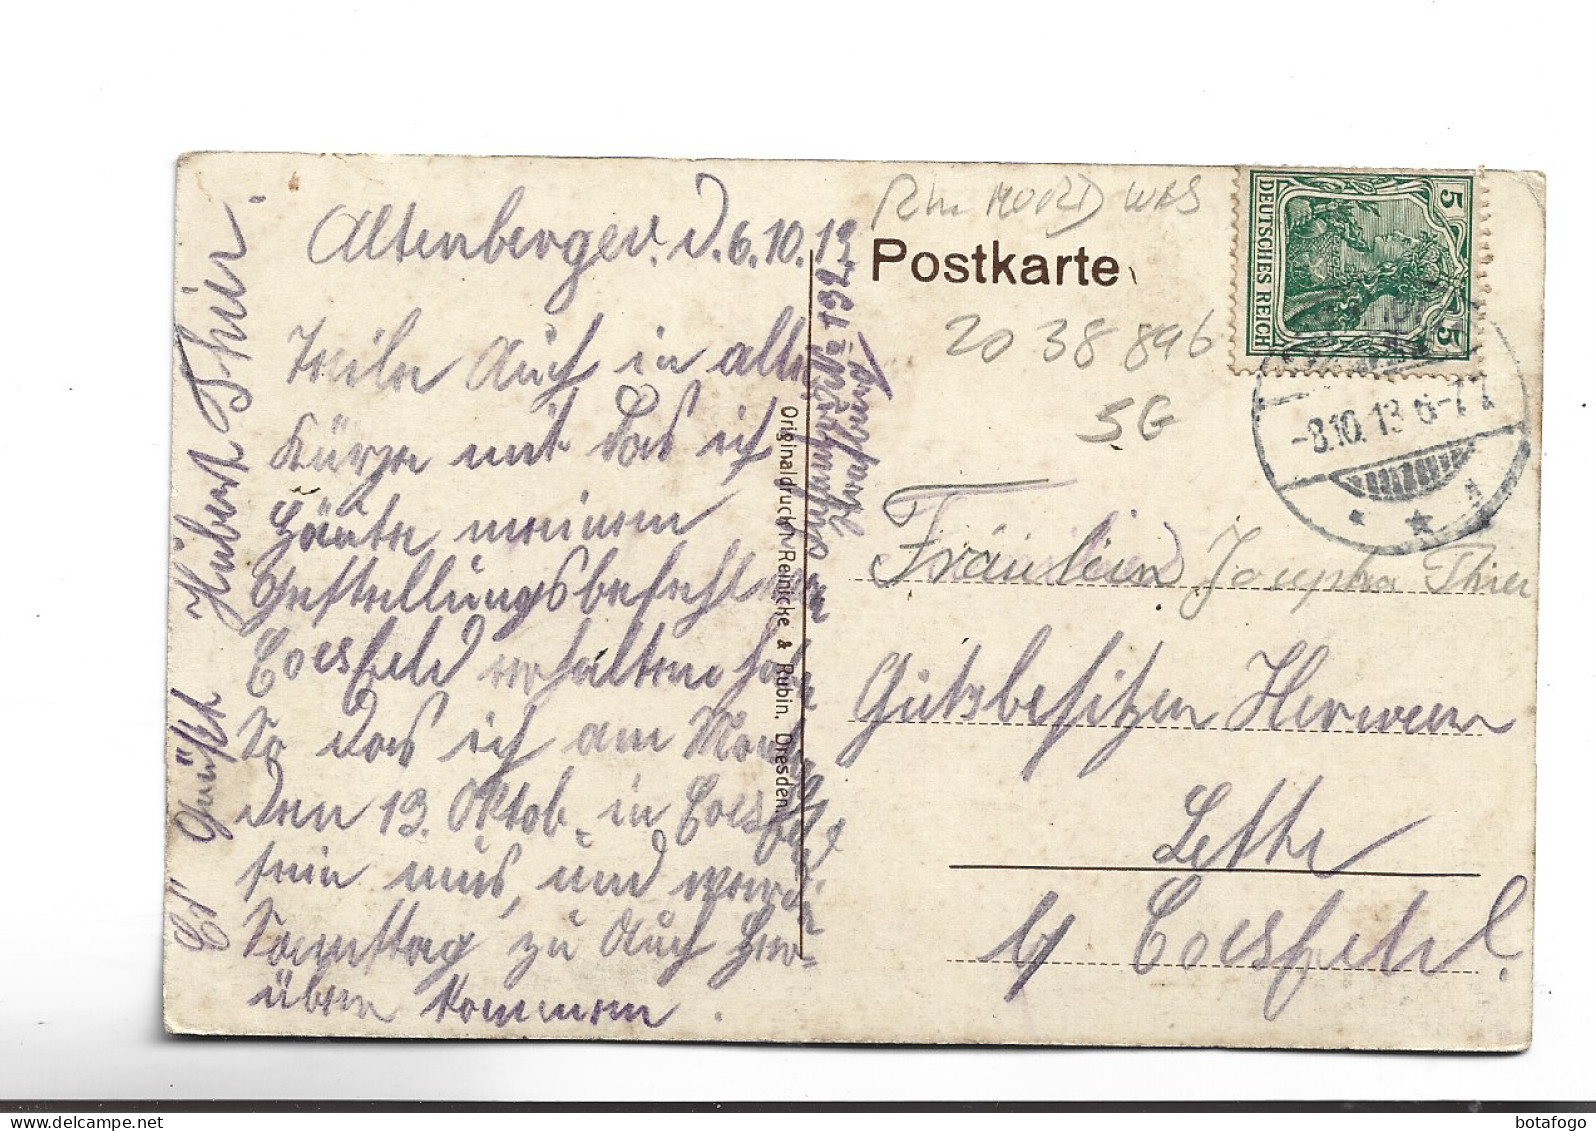 Altenberge d. 6.10.13.
Teile Auch in aller
Kürze mit das ich
Häute meinen
Gestellungsbefehl von
Coesfeld erhalten habe
So das ich am Montag
den 13. Oktob. in Coesfeld
sein mus, und werde
Sonnstag zu Auch her-
über kommen.
Es Grüßt Hubert Thier.
Originaldruck v. Reinicke & Rubin, Dresden.
Postkarte
20 38 896
5G
DEUTSCHES REICH
5
5
-8.10.13 6-7
Fräulein Josepha Thier
Gutsbesitzer Herween
Lette
b/ Coesfeld.
botafogo